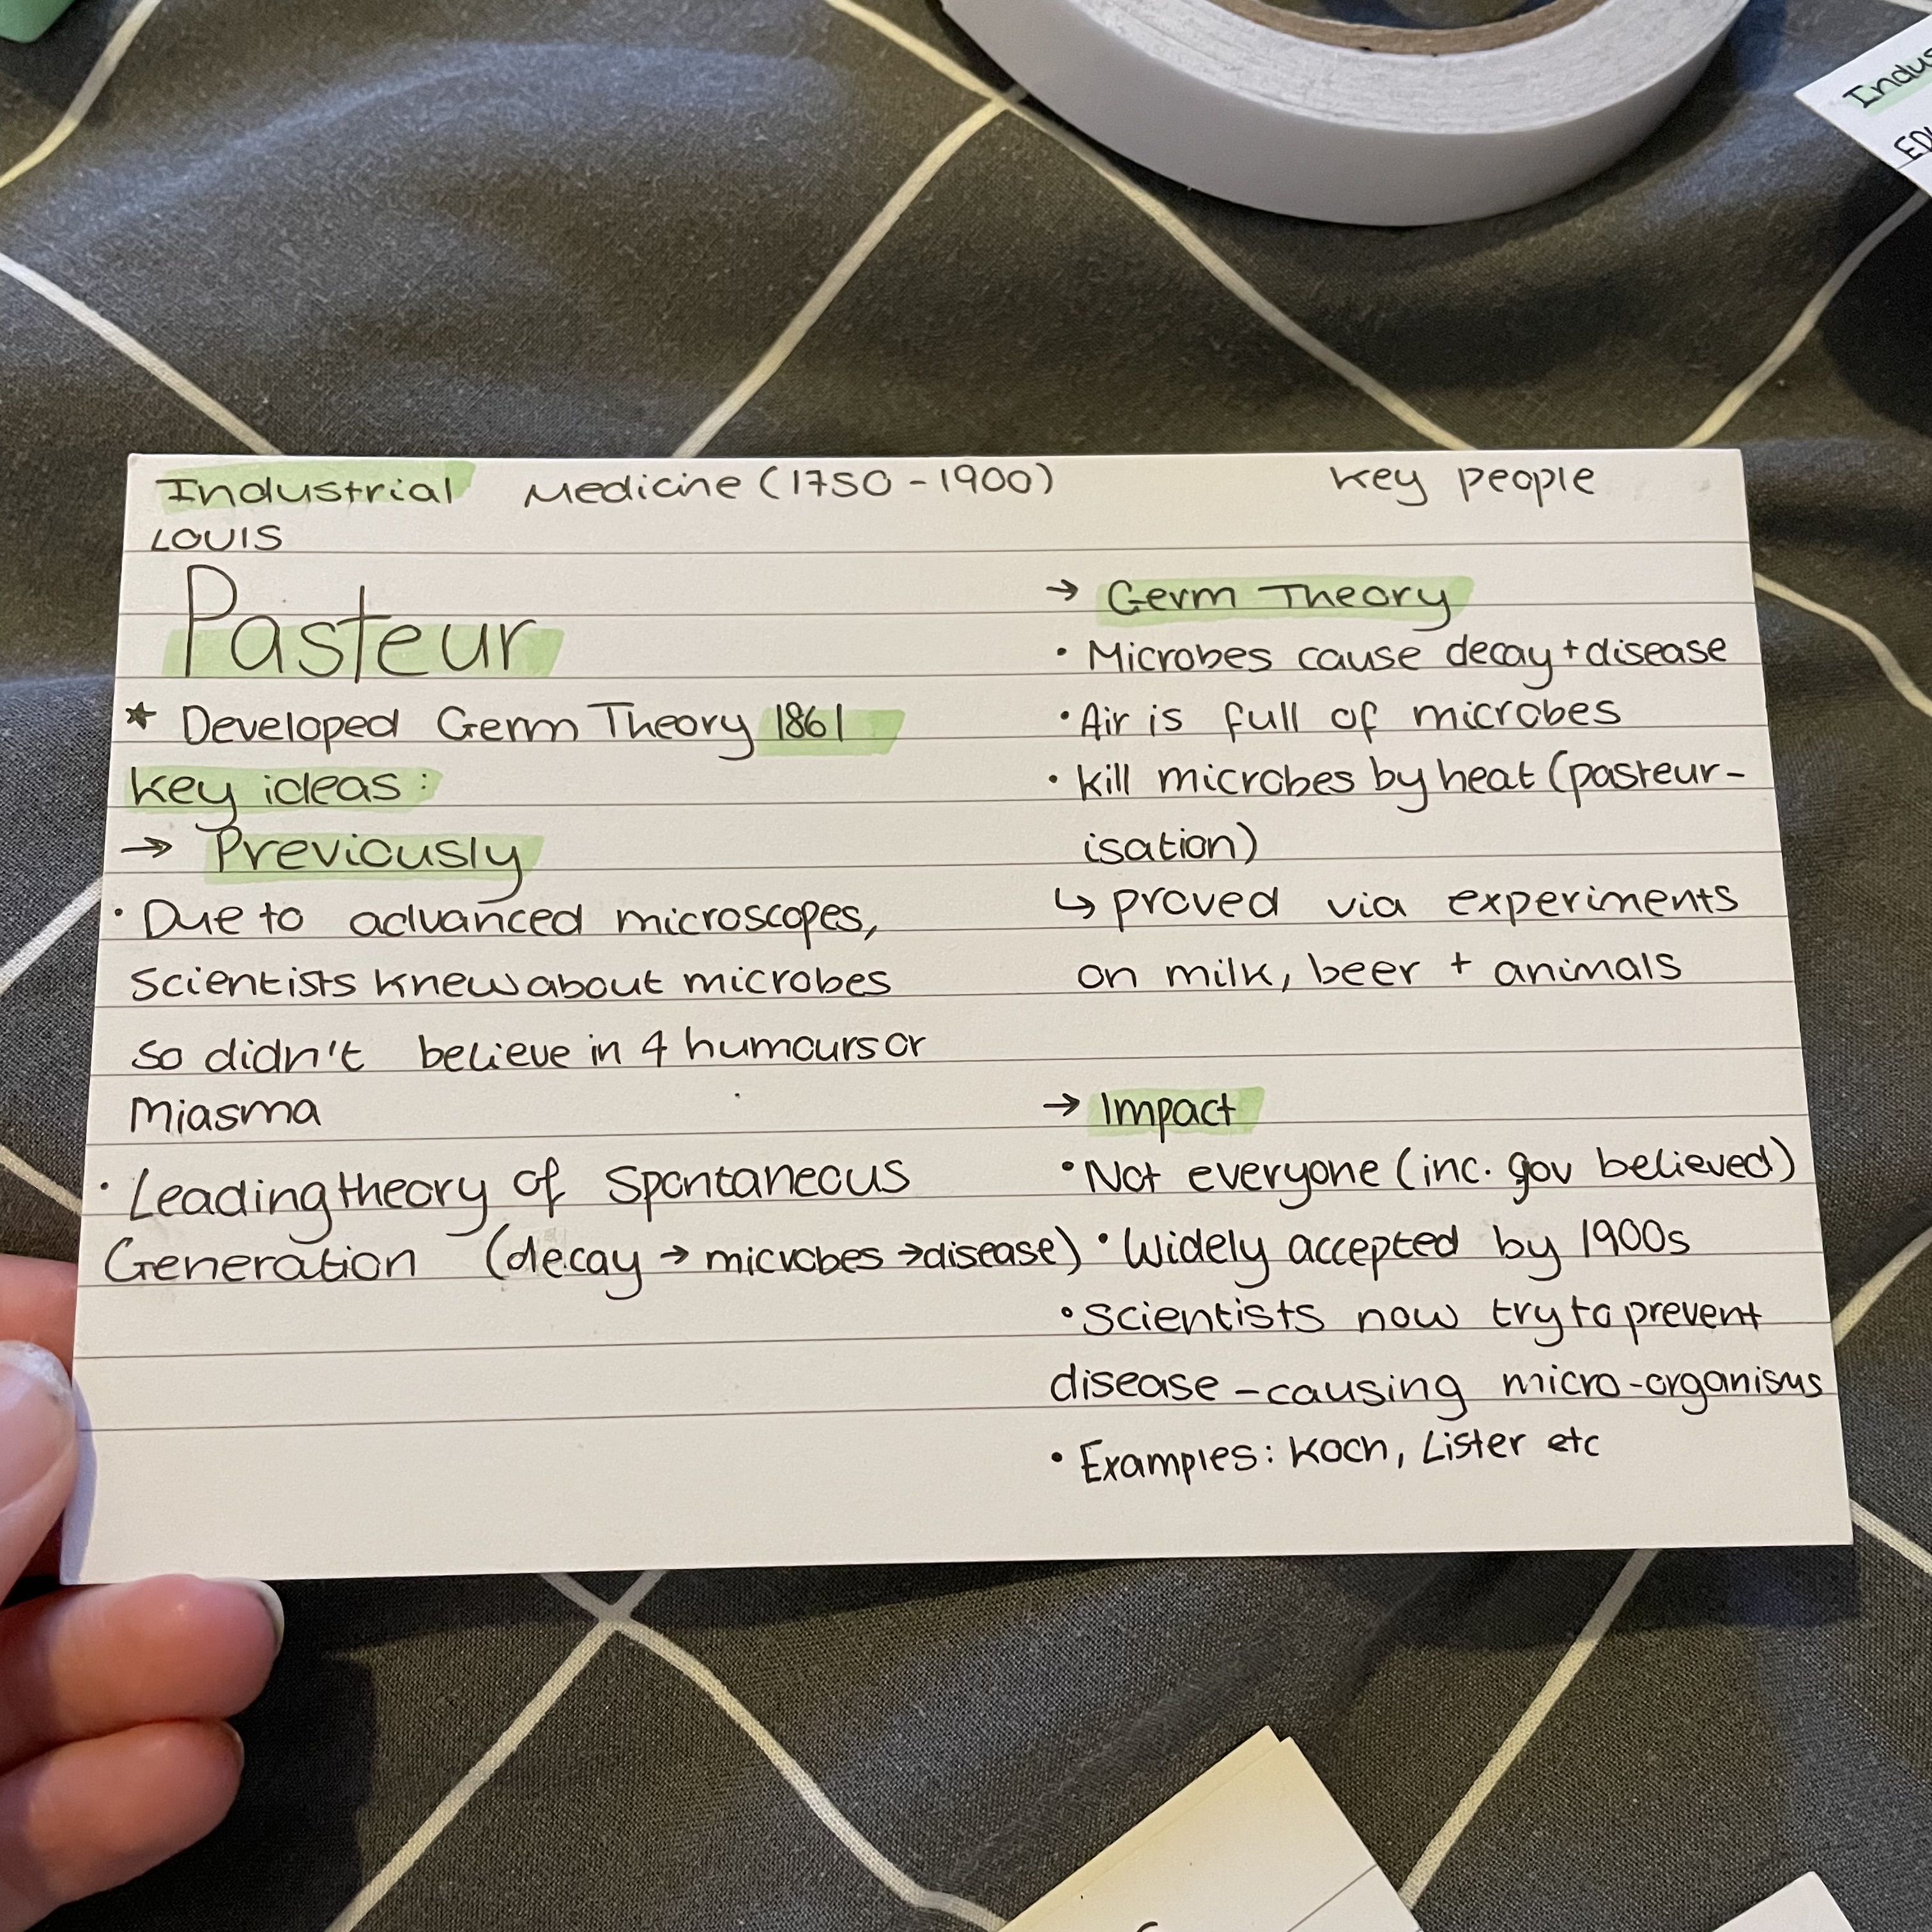 Industrial Medicine (1750-1900) Key people
LOUIS
Pasteur
* Developed Germ Theory 1861
Key ideas:
→ Previously
• Due to advanced microscopes,
scientists knew about microbes
so didn't believe in 4 humours or
Miasma
• Leading theory of Spontaneous
Generation (decay → microbes → disease)
→ Germ Theory
• Microbes cause decay + disease
• Air is full of microbes
• Kill microbes by heat (pasteur-
isation)
↳ proved via experiments
on milk, beer + animals
→ Impact
• Not everyone (inc. gov believed)
• Widely accepted by 1900s
• Scientists now try to prevent
disease-causing micro-organisms
• Examples: Koch, Lister etc
Indus